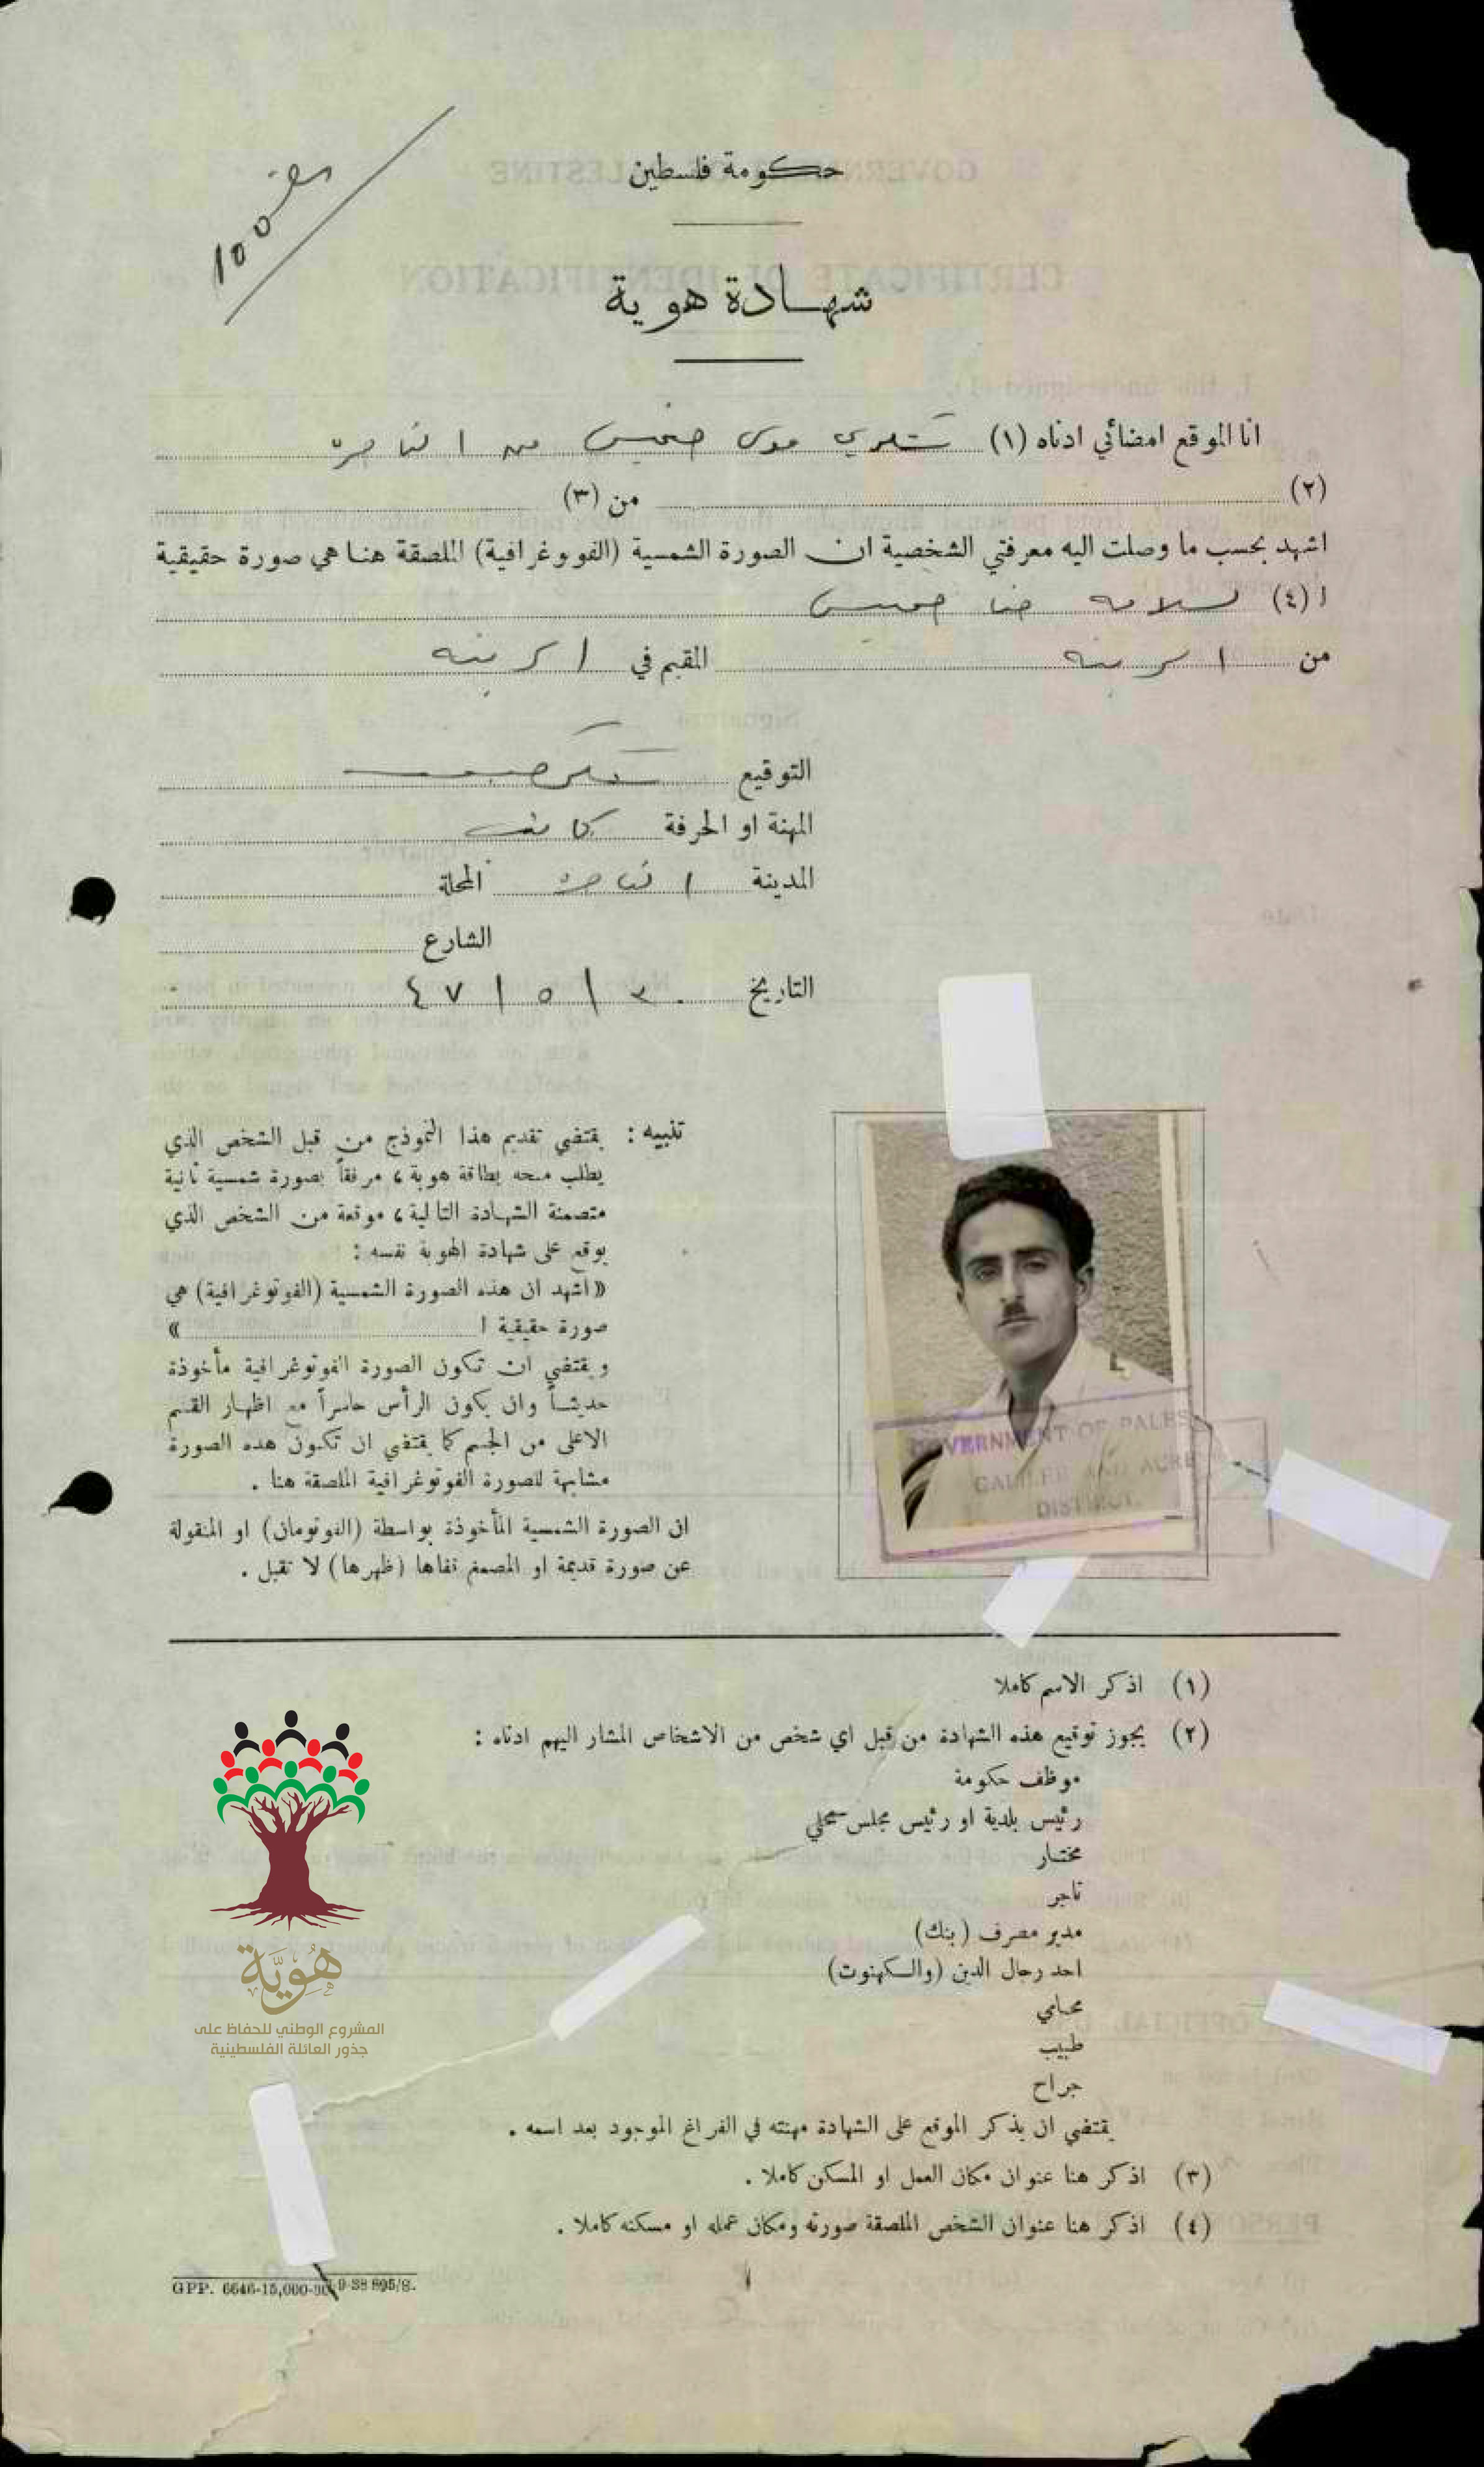 حكومة فلسطين
شهادة هوية
انا الموقع امضائي ادناه (١) شكري موسى خميس من الناصرة
(٢) من (٣)
اشهد بحسب ما وصلت اليه معرفتي الشخصية ان الصورة الشمسية (الفوتوغرافية) الملصقة هنا هي صورة حقيقية
ا (٤) سلامه حنا خميس
من الرينه المقيم في الرينه
التوقيع
المهنة او الحرفة كاتب
المدينة الناصرة المحلة
الشارع
التاريخ ٣٠/٥/٤٧
تنبيه : يقتضي تقديم هذا النموذج من قبل الشخص الذي
يطلب منحه بطاقة هوية ، مرفقاً بصورة شمسية ثانية
متضمنة الشهادة التالية ، موقعة من الشخص الذي
يوقع على شهادة الهوية نفسه :
« اشهد ان هذه الصورة الشمسية (الفوتوغرافية) هي
صورة حقيقية ا »
ويقتضي ان تكون الصورة الفوتوغرافية مأخوذة
حديثاً وان يكون الرأس حاسراً مع اظهار القسم
الاعلى من الجسم كما يقتضي ان تكون هذه الصورة
مشابهة للصورة الفوتوغرافية الملصقة هنا .
ان الصورة الشمسية المأخوذة بواسطة (الفوتومان) او المنقولة
عن صورة قديمة او المصمغ قفاها (ظهرها) لا تقبل .
GOVERNMENT OF PALES
GALILEE AND ACRE
DISTRICT
(١) اذكر الاسم كاملا
(٢) يجوز توقيع هذه الشهادة من قبل اي شخص من الاشخاص المشار اليهم ادناه :
موظف حكومة
رئيس بلدية او رئيس مجلس محلي
مختار
تاجر
مدير مصرف (بنك)
احد رجال الدين (والكهنوت)
محامي
طبيب
جراح
يقتضي ان يذكر الموقع على الشهادة مهنته في الفراغ الموجود بعد اسمه .
(٣) اذكر هنا عنوان مكان العمل او المسكن كاملا .
(٤) اذكر هنا عنوان الشخص الملصقة صورته ومكان عمله او مسكنه كاملا .
هُوِيَّة
المشروع الوطني للحفاظ على
جذور العائلة الفلسطينية
GPP. 6646-15,000-30-9-38 895/S.